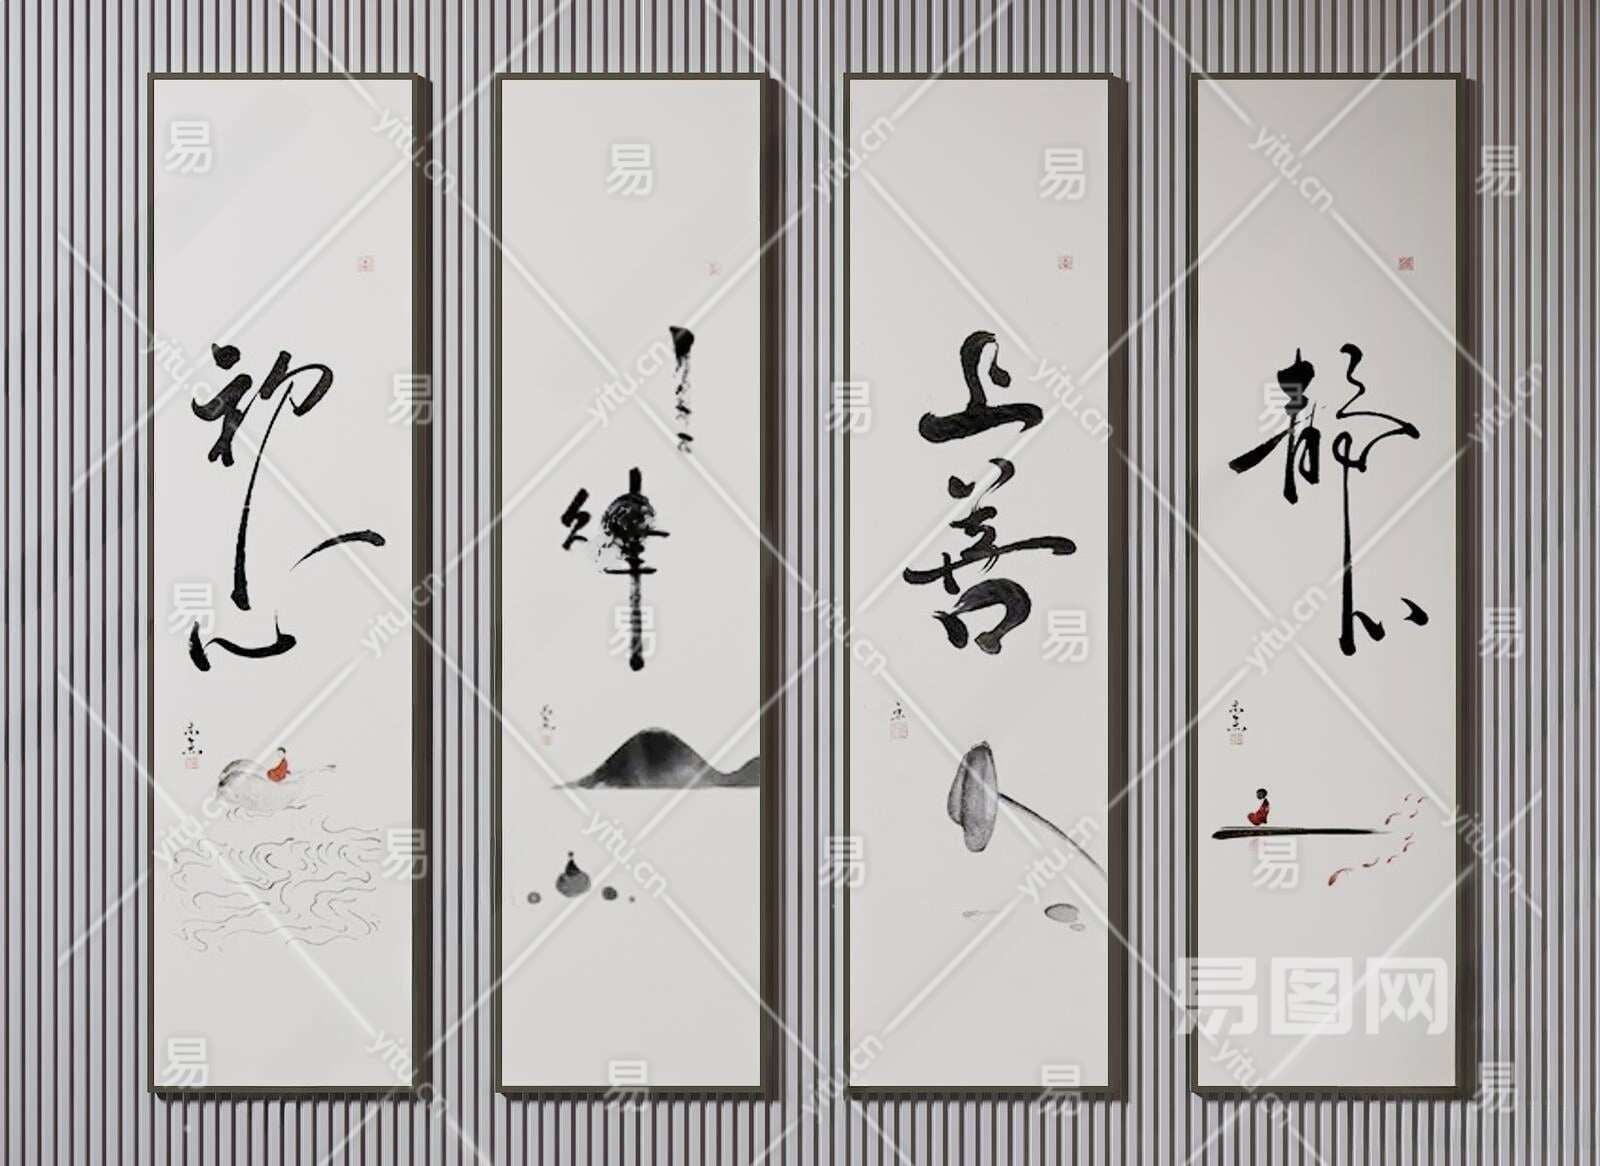 初心
上善
静心
易图网
yitu.cn
易